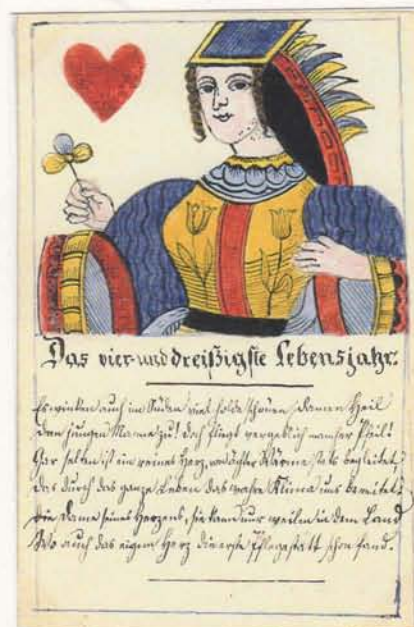 Das vier- und dreißigste Lebensjahr.
Es winken auch im Süden viel holde schöne Damen Heil
dem jungen Manne zu! doch fliegt vergeblich mancher Pfeil!
Gar selten ist ein reines Herz, von ächter Wärme stets begleitet,
das durch das ganze Leben das wahre Klima uns bereitet.
Die Dame seines Herzens, sie kann nur weilen in dem Land
Wo auch das eigene Herz die erste Pflegestatt schon fand.